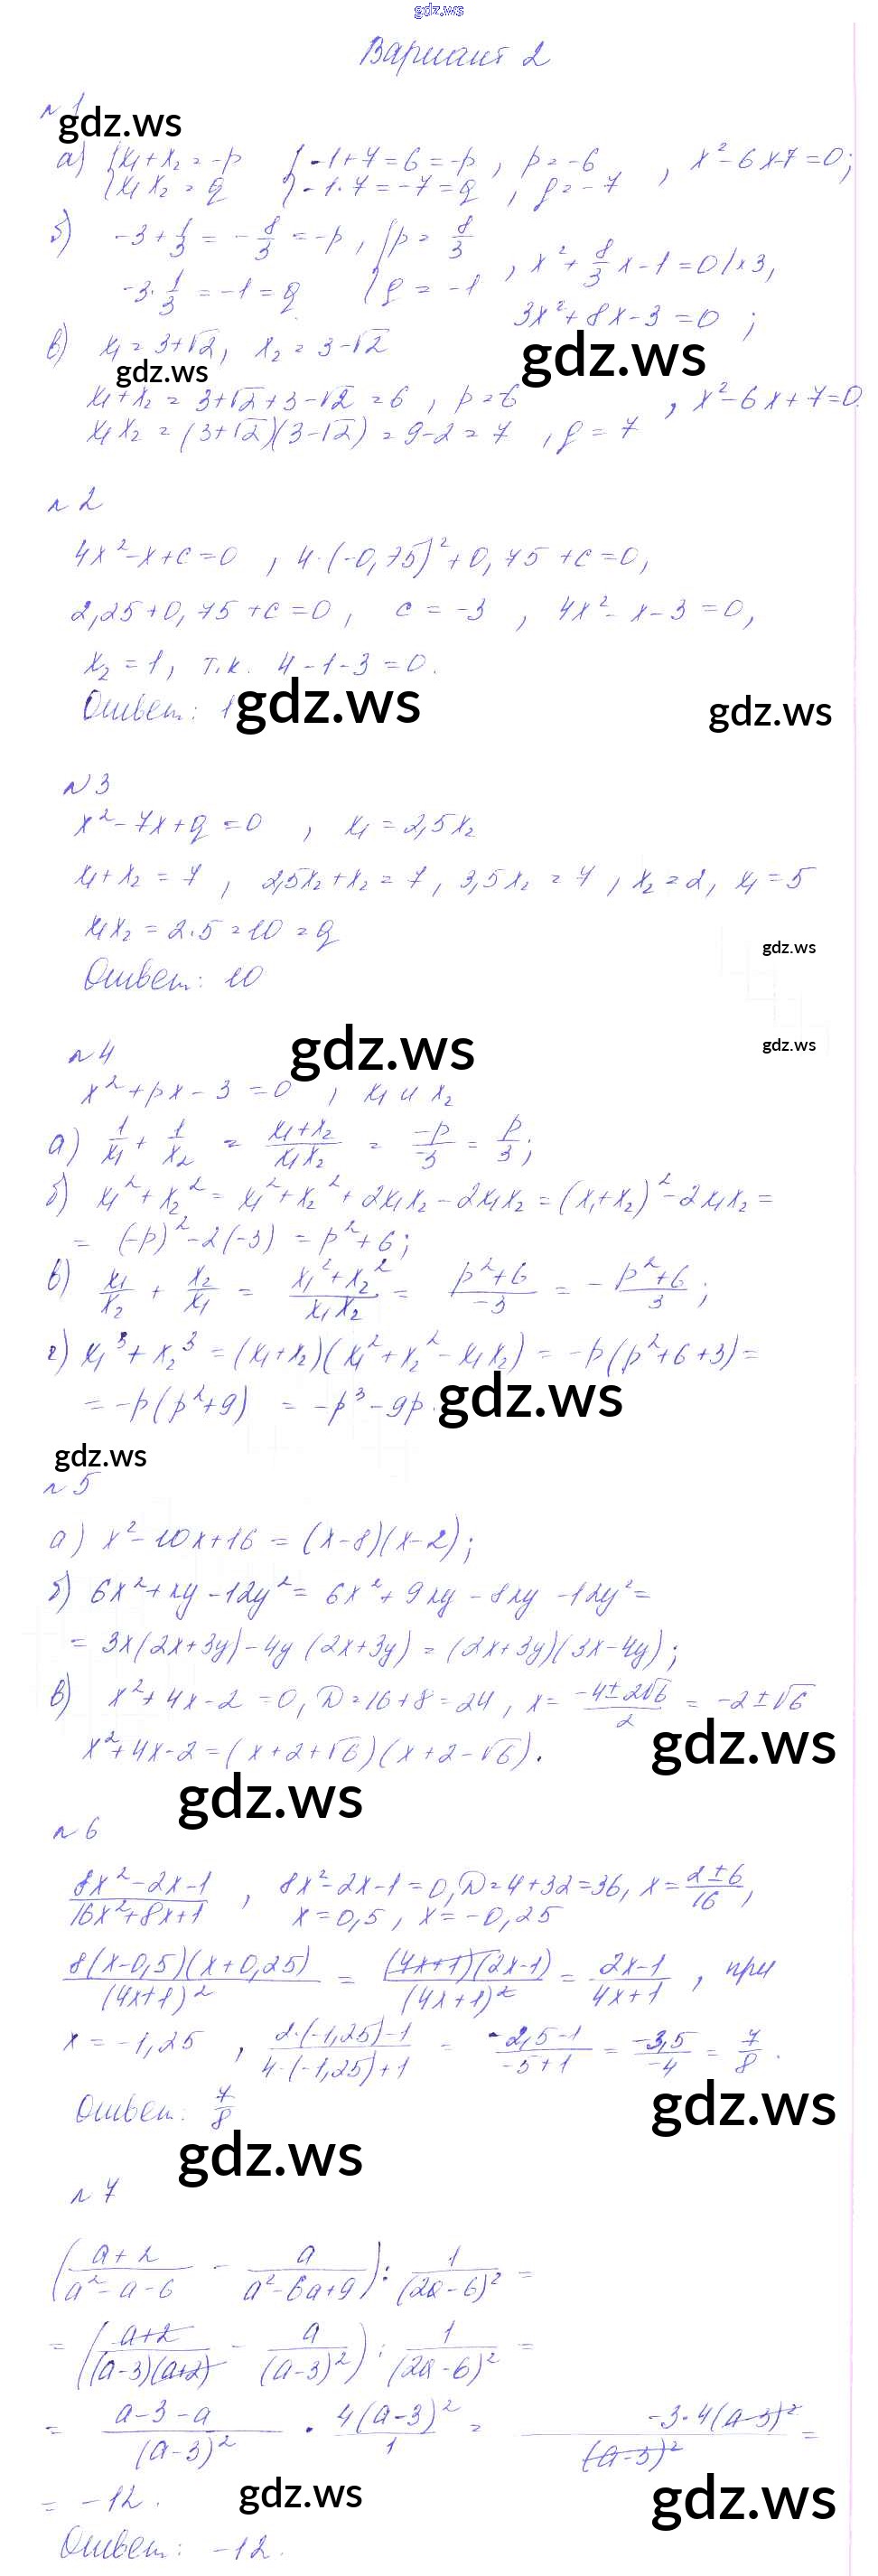 gdz.ws
Вариант 2
№1
gdz.ws
а) {x₁+x₂=-p {-1+7=6=-p, p=-6, x²-6x-7=0;
{x₁x₂=q {-1·7=-7=q, q=-7
б) -3+1/3=-8/3=-p, {p=8/3
-3·1/3=-1=q {q=-1, x²+8/3x-1=0/×3,
3x²+8x-3=0;
в) x₁=3+√2, x₂=3-√2
gdz.ws gdz.ws
x₁+x₂=3+√2+3-√2=6, p=6, x²-6x+7=0.
x₁x₂=(3+√2)(3-√2)=9-2=7, q=7
№2
4x²-x+c=0, 4·(-0,75)²+0,75+c=0,
2,25+0,75+c=0, c=-3, 4x²-x-3=0,
x₂=1, т.к. 4-1-3=0.
Ответ: 1
gdz.ws gdz.ws
№3
x²-7x+q=0, x₁=2,5x₂
x₁+x₂=7, 2,5x₂+x₂=7, 3,5x₂=7, x₂=2, x₁=5
x₁x₂=2·5=10=q
gdz.ws
Ответ: 10
gdz.ws gdz.ws
№4
x²+px-3=0, x₁ и x₂
а) 1/x₁+1/x₂=(x₁+x₂)/(x₁x₂)=-p/-3=p/3;
б) x₁²+x₂²=x₁²+x₂²+2x₁x₂-2x₁x₂=(x₁+x₂)²-2x₁x₂=
=(-p)²-2(-3)=p²+6;
в) x₁/x₂+x₂/x₁=(x₁²+x₂²)/(x₁x₂)=(p²+6)/-3=-(p²+6)/3;
г) x₁³+x₂³=(x₁+x₂)(x₁²+x₂²-x₁x₂)=-p(p²+6+3)=
=-p(p²+9)=-p³-9p.
gdz.ws
gdz.ws
№5
а) x²-10x+16=(x-8)(x-2);
б) 6x²+xy-12y²=6x²+9xy-8xy-12y²=
=3x(2x+3y)-4y(2x+3y)=(2x+3y)(3x-4y);
в) x²+4x-2=0, D=16+8=24, x=(-4±2√6)/2=-2±√6
x²+4x-2=(x+2+√6)(x+2-√6).
gdz.ws
gdz.ws
№6
(8x²-2x-1)/(16x²+8x+1), 8x²-2x-1=0, D=4+32=36, x=(2±6)/16,
x=0,5, x=-0,25
8(x-0,5)(x+0,25)/(4x+1)²=(4x+1)(2x-1)/(4x+1)²=(2x-1)/(4x+1), при
x=-1,25, (2·(-1,25)-1)/(4·(-1,25)+1)=(-2,5-1)/(-5+1)=-3,5/-4=7/8.
Ответ: 7/8
gdz.ws
gdz.ws
№7
((a+2)/(a²-a-6)-a/(a²-6a+9)):1/(2a-6)²=
=((a+2)/((a-3)(a+2))-a/(a-3)²):1/(2a-6)²=
=(a-3-a)/(a-3)²·4(a-3)²/1=-3·4(a-3)²/(a-3)²=
=-12.
gdz.ws gdz.ws
Ответ: -12.